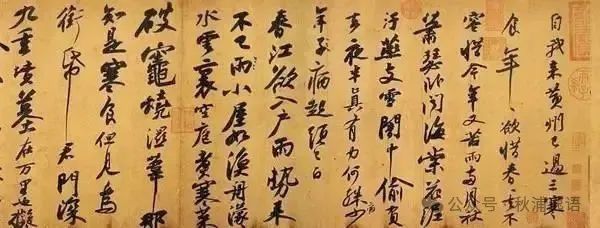 自我來黃州已過三寒
食年〻欲惜春〻去不
容惜今年又苦雨兩月秋
蕭瑟臥聞海棠花泥
汙燕支雪闇中偷負
去夜半真有力何殊少
年子病起須已白
春江欲入戶雨勢來
不已雨小屋如漁舟濛〻
水雲裏空庖煮寒菜
破竈燒濕葦那
知是寒食但見烏
銜帋君門深
九重墳墓在万里也擬
公众号 · 秋浦